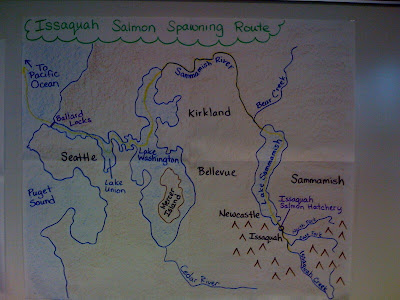 Issaquah Salmon Spawning Route
To
Pacific
Ocean
Sammamish River
Bear Creek
Ballard
Locks
Kirkland
Seattle
Lake
Washington
Lake
Union
Bellevue
Lake Sammamish
Sammamish
Mercer
Island
Puget
Sound
Newcastle
Issaquah
Salmon Hatchery
North Fork
East Fork
Issaquah
Issaquah Creek
Cedar River